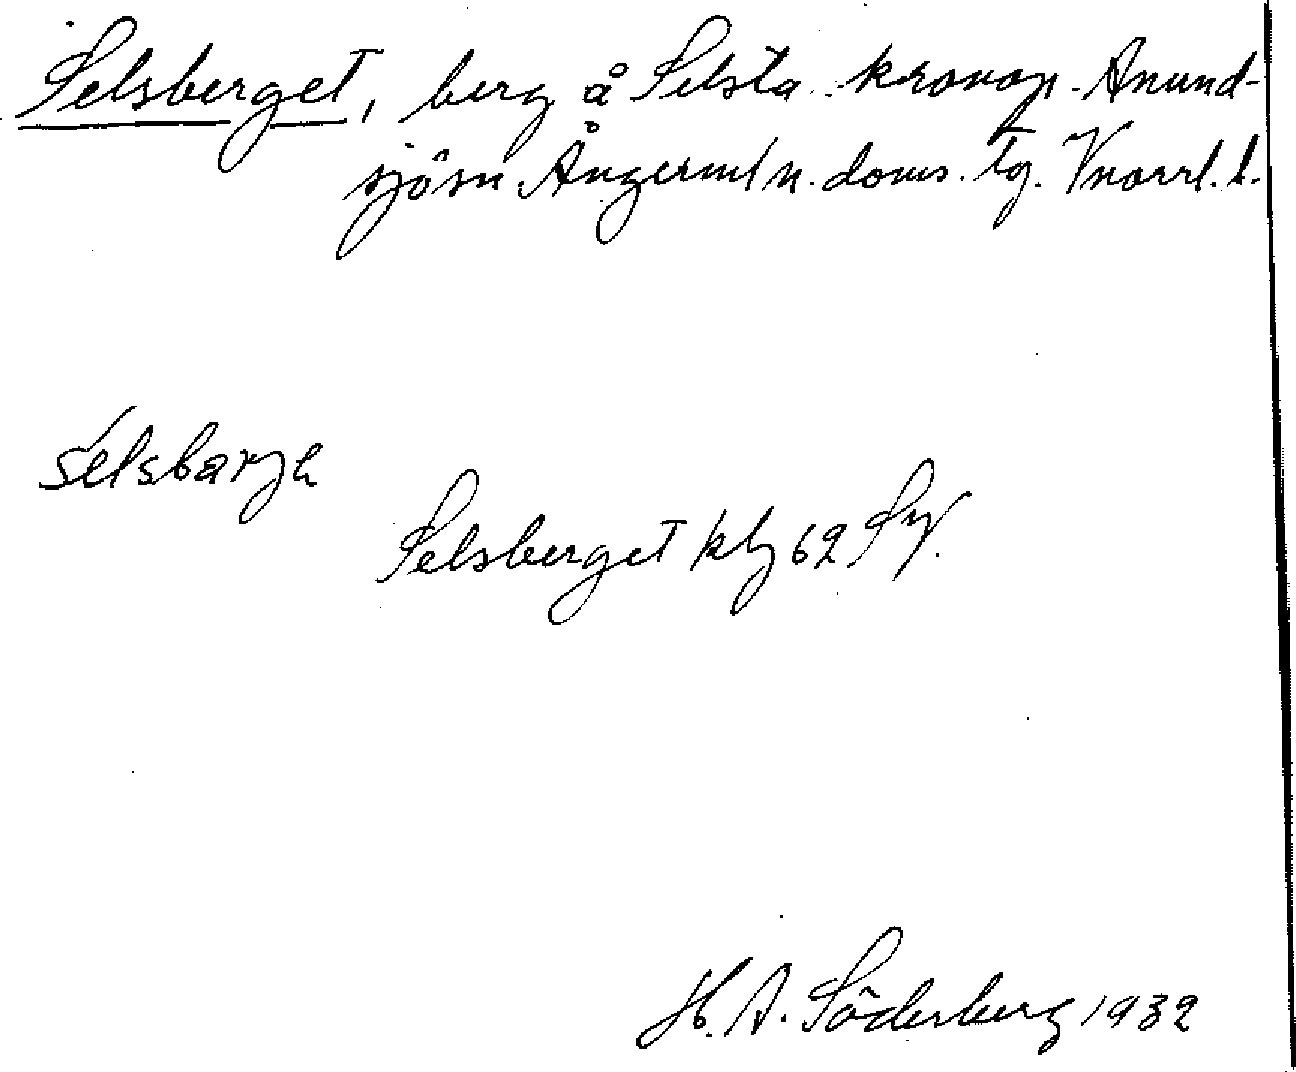 Selsberget, berg å Selsta kronop. Anund-
sjö sn Ångerml n. doms. tg. Vnorrl. l.
sélsbarjɐ
Selsberget kbg 62 Sv.
H. A. Söderberg 1932